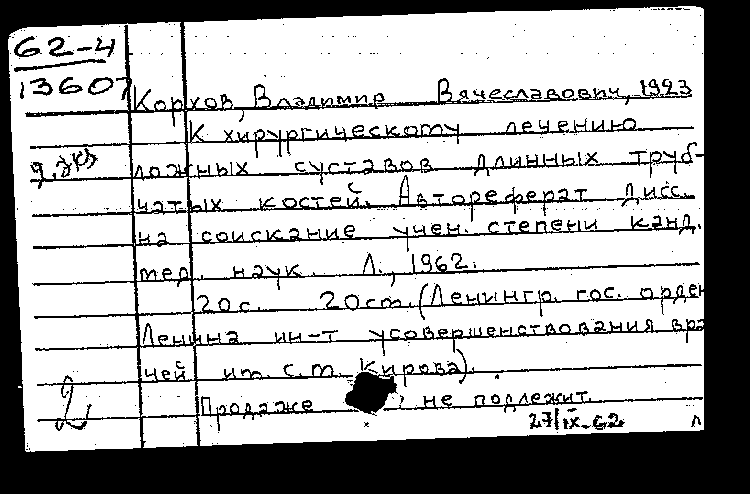 62-4
13607
Корхов, Владимир Вячеславович, 1923
К хирургическому лечению
2 экз
ложных суставов длинных труб-
чатых костей. Автореферат дисс.
на соискание учен. степени канд.
мед. наук. Л., 1962.
20 с. 20 см. (Ленингр. гос. орден
Ленина ин-т усовершенствования вра
чей им. С.М. Кирова).
2
Продаже не подлежит.
27/IX-62 л